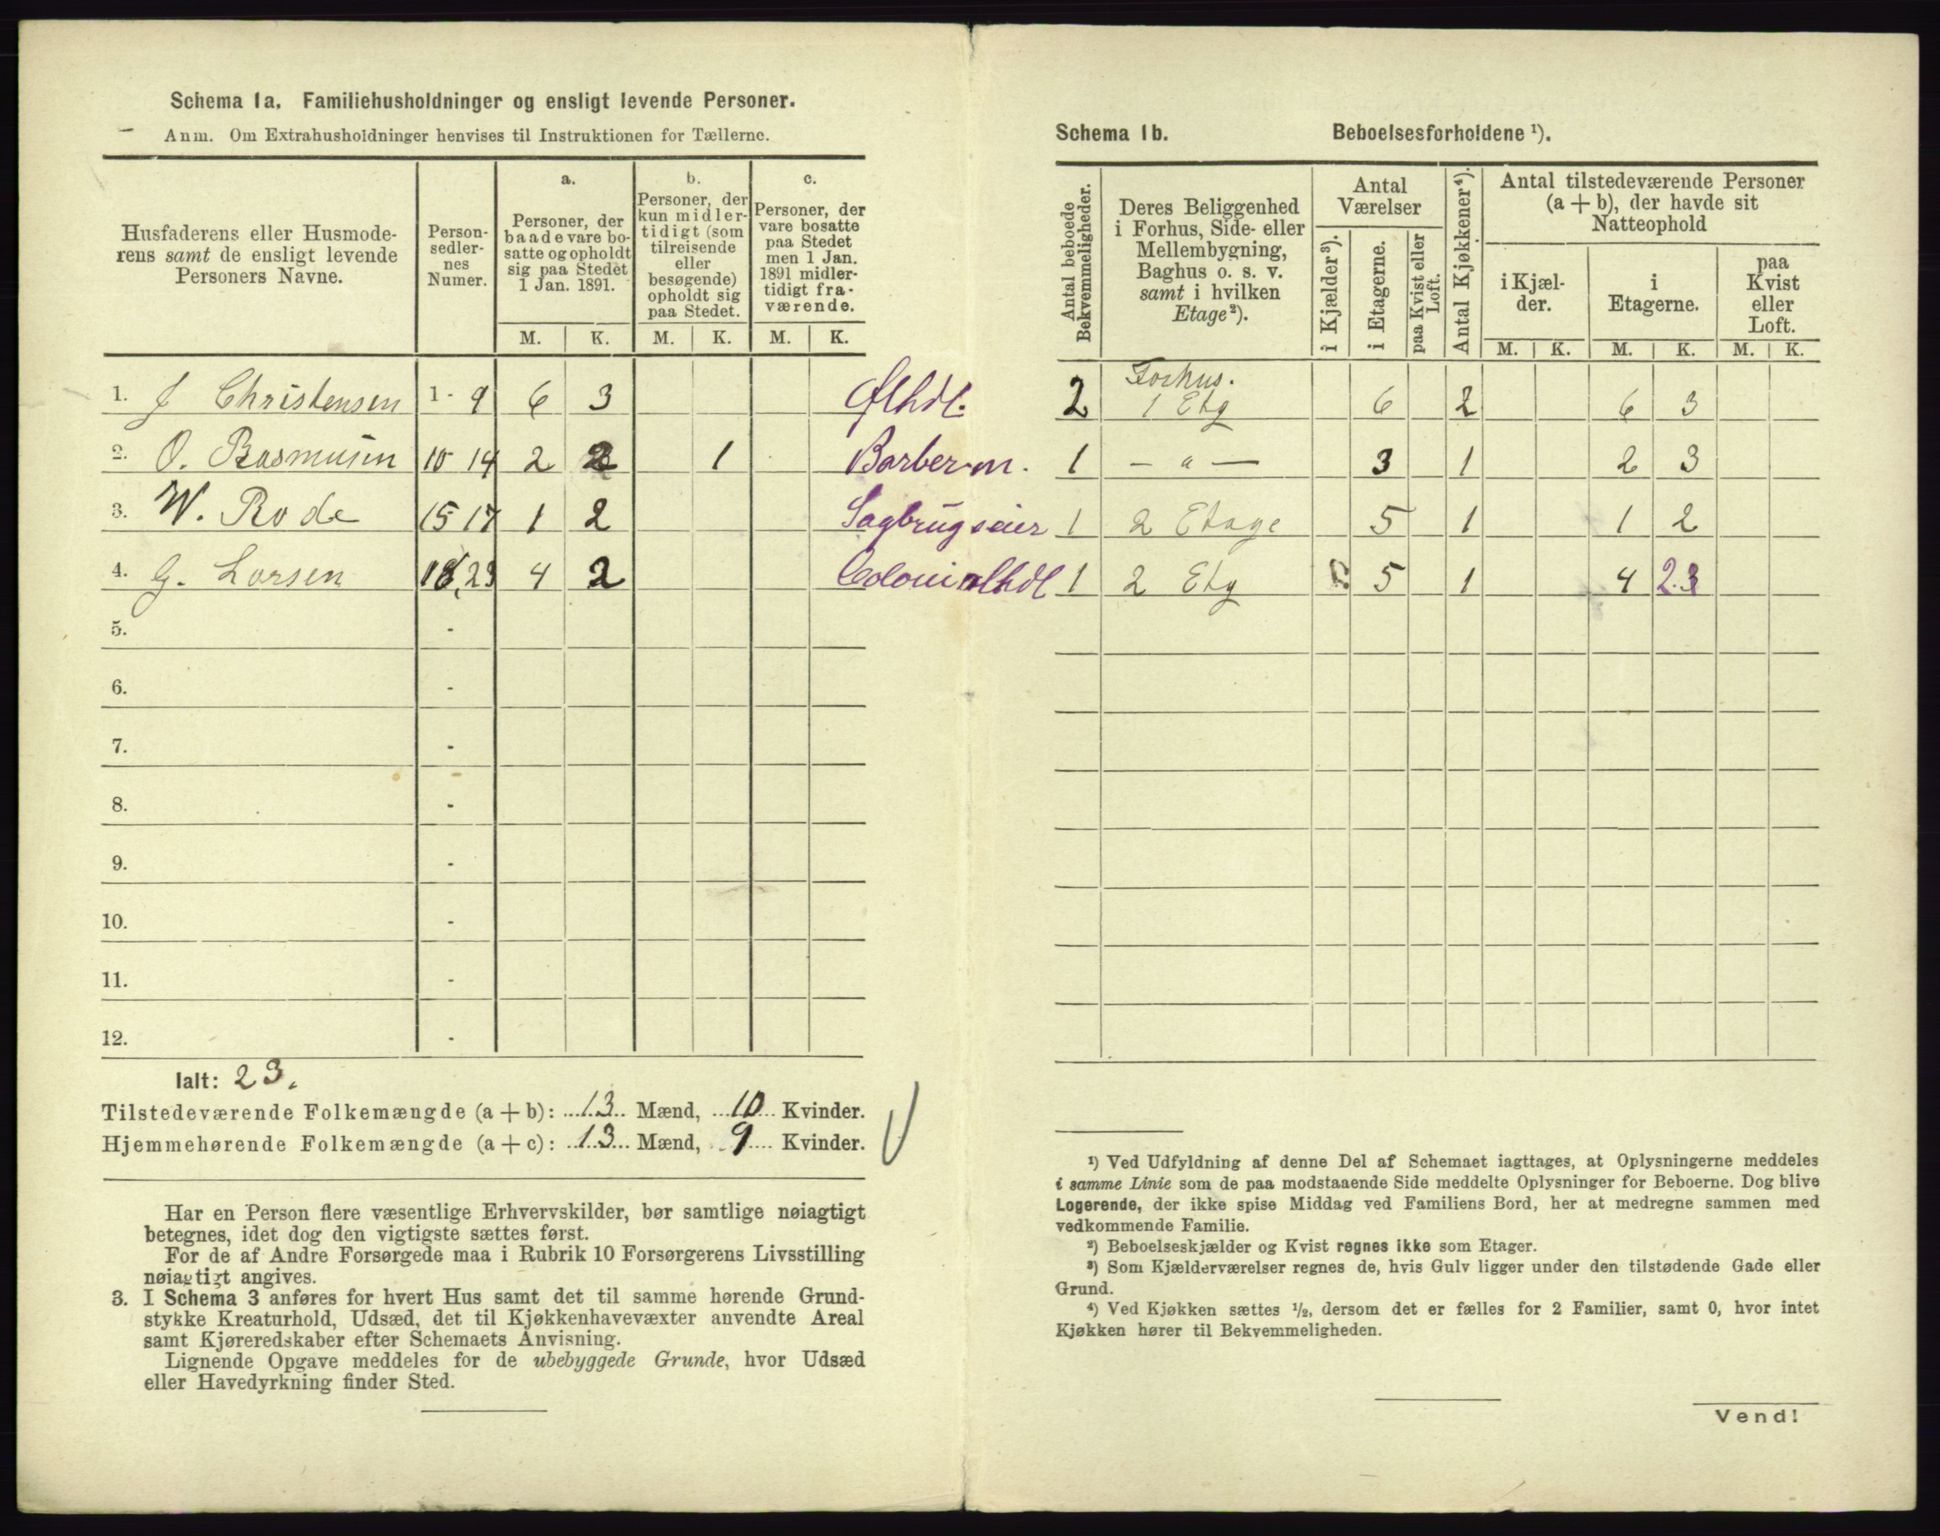 Schema 1a. Familiehusholdninger og ensligt levende Personer.
Anm. Om Extrahusholdninger henvises til Instruktionen for Tællerne.
Husfaderens eller Husmoderens samt de ensligt levende Personers Navne.
Personsedlernes Numer.
a.
Personer, der baade vare bosatte og opholdt sig paa Stedet 1 Jan. 1891.
b.
Personer, der kun midlertidigt (som tilreisende eller besøgende) opholdt sig paa Stedet.
c.
Personer, der vare bosatte paa Stedet men 1 Jan. 1891 midlertidigt fraværende.
M. K. M. K. M. K.
1. J Christensen 1-9 6 3 Ølhdl.
2. O. Rasmusen 10 14 2 2 1 Barberm.
3. W. Rode 15 17 1 2 Sagbrugseier
4. G. Larsen 18, 23 4 2 Colonialhdl
5. -
6. -
7. -
8. -
9. -
10. -
11. -
12. -
Ialt: 23.
Tilstedeværende Folkemængde (a + b): 13 Mænd, 10 Kvinder.
Hjemmehørende Folkemængde (a + c): 13 Mænd, 9 Kvinder.
Har en Person flere væsentlige Erhvervskilder, bør samtlige nøiagtigt
betegnes, idet dog den vigtigste sættes først.
For de af Andre Forsørgede maa i Rubrik 10 Forsørgerens Livsstilling
nøiagtigt angives.
3. I Schema 3 anføres for hvert Hus samt det til samme hørende Grund-
stykke Kreaturhold, Udsæd, det til Kjøkkenhavevæxter anvendte Areal
samt Kjøreredskaber efter Schemaets Anvisning.
Lignende Opgave meddeles for de ubebyggede Grunde, hvor Udsæd
eller Havedyrkning finder Sted.
Schema 1b. Beboelsesforholdene ¹).
Antal beboede Bekvemmeligheder.
Deres Beliggenhed i Forhus, Side- eller Mellembygning, Baghus o. s. v. samt i hvilken Etage²).
Antal Værelser
i Kjælder³).
i Etagerne.
paa Kvist eller Loft.
Antal Kjøkkener⁴).
Antal tilstedeværende Personer (a + b), der havde sit Natteophold
i Kjælder.
i Etagerne.
paa Kvist eller Loft.
M. K. M. K. M. K.
2 Forhus. 1 Etg 6 2 6 3
1 — " — 3 1 2 3
1 2 Etage 5 1 1 2
1 2 Etg 5 1 4 2.3
¹) Ved Udfyldning af denne Del af Schemaet iagttages, at Oplysningerne meddeles
i samme Linie som de paa modstaaende Side meddelte Oplysninger for Beboerne. Dog blive
Logerende, der ikke spise Middag ved Familiens Bord, her at medregne sammen med
vedkommende Familie.
²) Beboelseskjælder og Kvist regnes ikke som Etager.
³) Som Kjælderværelser regnes de, hvis Gulv ligger under den tilstødende Gade eller
Grund.
⁴) Ved Kjøkken sættes ½, dersom det er fælles for 2 Familier, samt 0, hvor intet
Kjøkken hører til Bekvemmeligheden.
Vend!